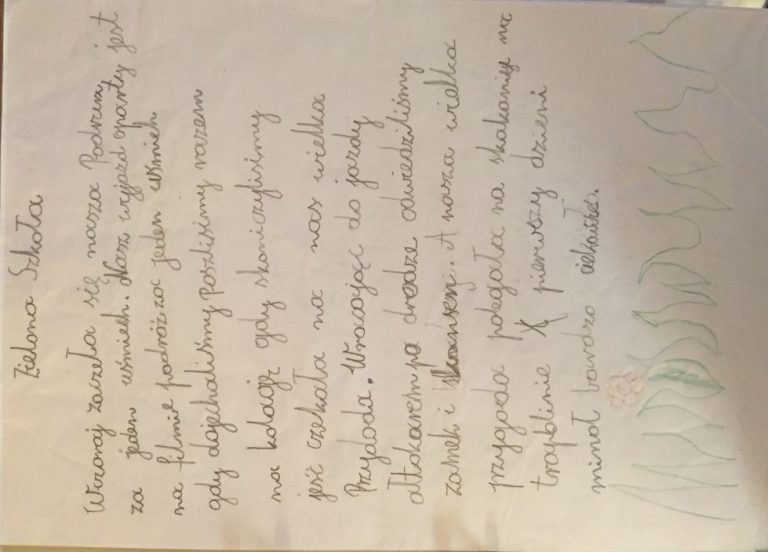 Zielona Szkoła
Wczoraj zaczeła się nasza Podruży
za jeden uśmiech. Nasz wyjazd oparty jest
na filmie podróż za jeden uśmiech
gdy dojechaliśmy poszliśmy razem
na kolację gdy skończyliśmy
jeść czekała na nas wielka
Przydoda. Wracając do jazdy
ałtokarem po drodze odwiedziliśmy
zamek i . A nasza wielka
przygoda polegała na skakaniu na
tramplinie pierwszy dzień
minoł bardzo ciekawie.